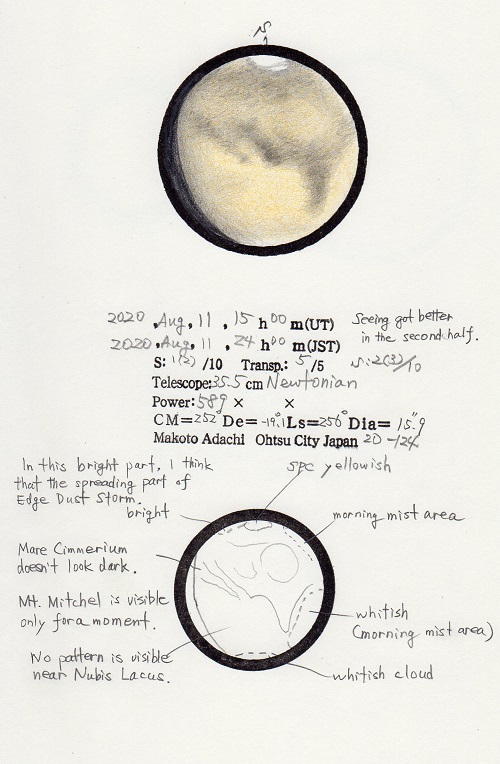 S
2020 , Aug , 11 , 15 h 00 m (UT)
Seeing got better
in the second half.
2020 , Aug , 11 , 24 h 00 m (JST)
S: 1(2) /10 Transp.: 5 /5
S:2(3)/10
Telescope:35.5 cm Newtonian
Power:589 × ×
CM=252° De= -19.1 Ls=256° Dia= 15".9
Makoto Adachi Ohtsu City Japan 20-124
In this bright part, I think
that the spreading part of
Edge Dust Storm.
spc yellowish
bright
morning mist area
Mare Cimmerium
doesn't look dark.
Mt. Mitchel is visible
only for a moment.
whitish
(morning mist area)
No pattern is visible
near Nubis Lacus.
whitish cloud